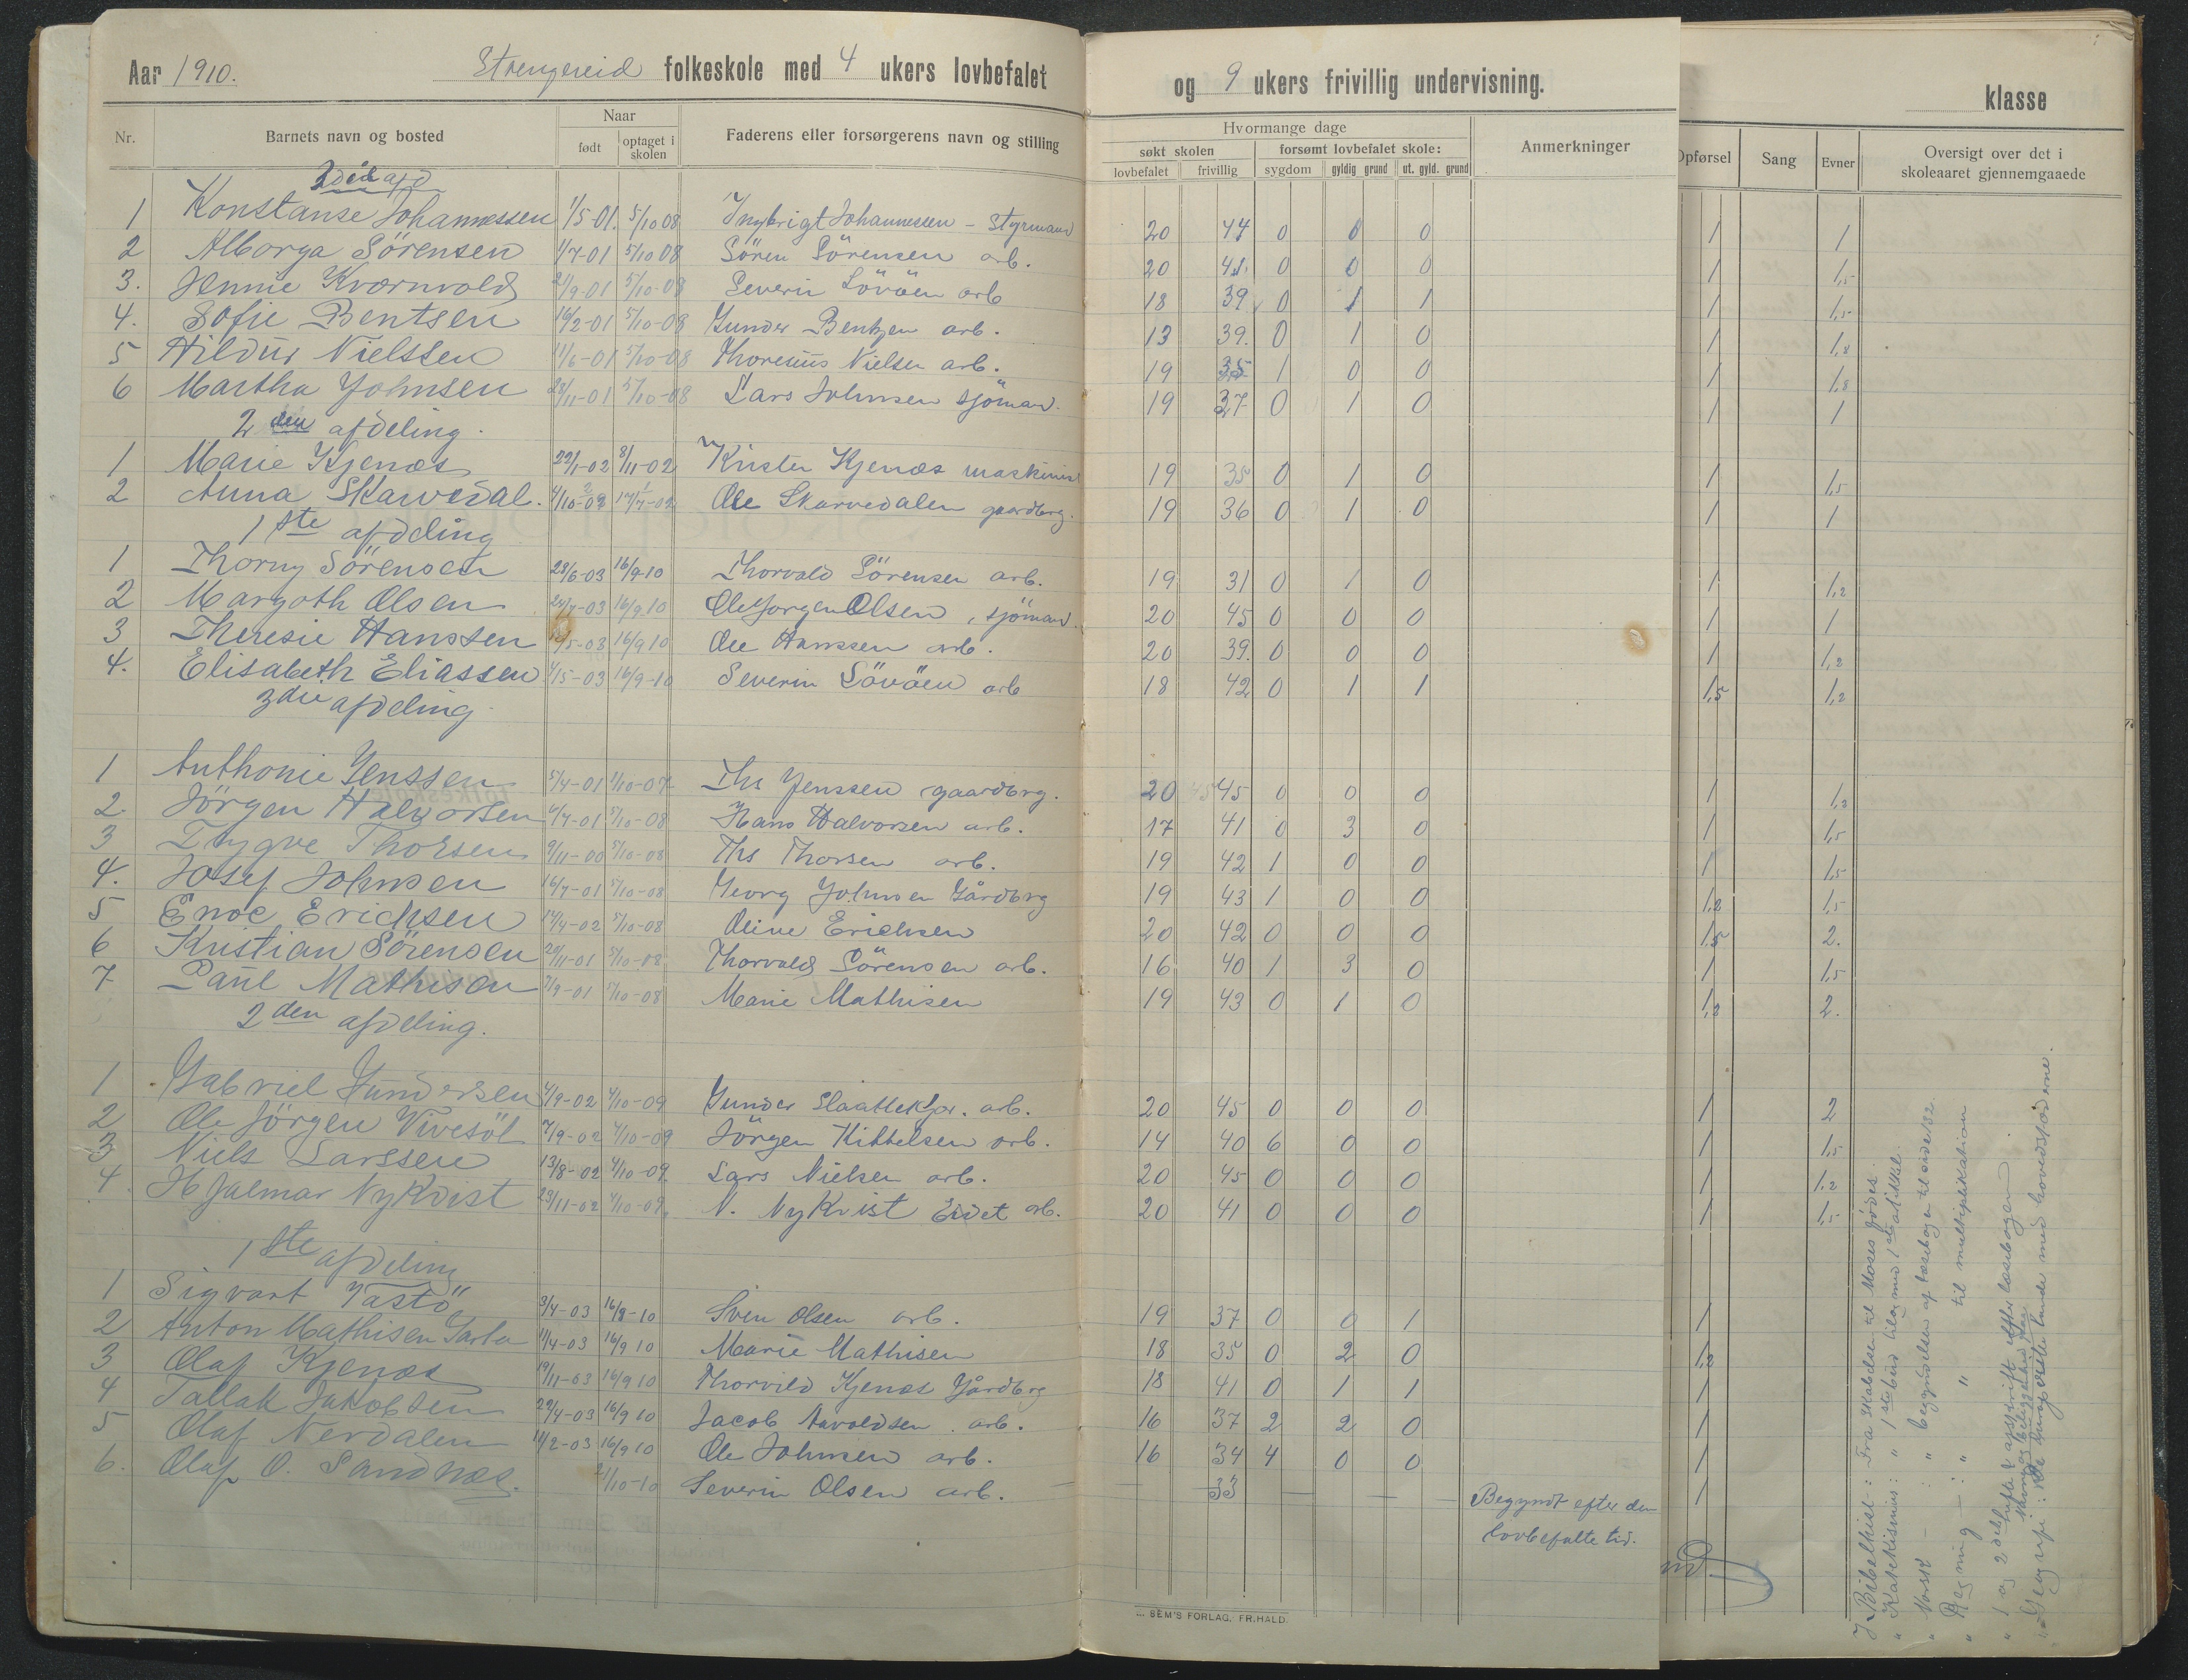 Aar 1910. Strengereid folkeskole med 4 ukers lovbefalet og 9 ukers frivillig undervisning. klasse
Nr. Barnets navn og bosted Naar født optaget i skolen Faderens eller forsørgerens navn og stilling Hvormange dage søkt skolen lovbefalet frivillig forsømt lovbefalet skole: sygdom gyldig grund ut. gyld. grund Anmerkninger Opførsel Sang Evner Oversigt over det i skoleaaret gjennemgaaede
afd
1 Konstanse Johannessen 1/5-01. 5/10 08 Ingbrigt Johannessen - Styrmand 20 44 0 0 0 1 1
2 Alborga Sörensen 1/7-01 5/10 08 Sören Sörensen arb. 20 0 0 0 1 1,5
3. Jennie Kvernvold 2/9-01 5/10-08 Severin Lövåen arb 18 39 0 1 1 1 1,5
4. Sofie Bentsen 16/2-01 5/10-08 Gunder Bentzen arb. 13 39. 0 1 0 1 1,8
5 Hildur Nielssen 11/6-01 5/10-08 Thoresius Nielsen arb. 19 35 1 0 0 1 1,8
6 Martha Johnsen 28/11-01 5/10-08 Lars Johnsen sjömand. 19 37 0 1 0 1 1
2den afdeling.
1 Marie Kjenæs 22/1-02 8/11-02 Krister Kjenæs maskinist 19 35 0 1 0 1 1,5
2 Anna Skarvedal. Ole Skarvedalen gaardbrg. 19 36 0 1 0 1 1
1ste afdeling
1 Thorny Sörensen 28/6-03 16/9-10 Thorvald Sörensen arb. 19 31 0 1 0 1 1,2
2 Margoth Olsen 24/7-03 16/9.10 Ole Jorgen Olsen, sjömand. 20 45 0 0 0 1 1
3 Theresie Hanssen 16/9 10 Ole Hanssen arb. 20 39. 0 0 0 1 1,2
4. Elisabeth Eliassen 16/9-10 Severin Lövåen arb 18 42 0 1 1 1,5 1,2
3die afdeling
1 Anthonie Jenssen 5/4-01 1/10-07 Ths Jenssen gaardbrg. 20 45 0 0 0 1 1,2
2 Jörgen Halvorsen 6/7-01 5/10-08 Hans Halvorsen arb. 17 41 0 3 0 1 1,5
3 Trygve Thorsen 9/11-00 5/10-08 Ths Thorsen arb. 19 42 1 0 0 1 1,5
4. Josef Johnsen 16/7-01 5/10-08 Georg Johnsen Gårdbrg 19 43 1 0 0 1,2 1,5
5 Enoc Erichsen 14/4-02 5/10-08 Oline Erichsen 20 42 0 0 0 1,5 2.
6 Kristian Sörensen 20/11-01 5/10-08 Thorvald Sörensen arb. 16 40 1 3 0 1 1,5
7 Paul Mathisen 7/9-01 5/10-08 Marie Mathisen 19 43 0 1 0 1,2 2.
2den afdeling.
1 Gabriel Gundersen 4/9-02 4/10-09 Gunder Slaattekjær. arb. 20 45 0 0 0 1 2
2 Ole Jörgen Vivesöl 7/9-02 4/10-09 Jörgen Kittelsen arb. 14 40 6 0 0 1 1,5
3 Niels Larssen 13/8-02 4/10-09 Lars Nielsen arb. 20 45 0 0 0 1 1,2
4. Hjalmar Nykvist 23/11-02 4/10-09 N. Nykvist Eidet arb. 20 41 0 0 0 1 1,5
1ste afdeling
1 Sigvart Tastö 3/4-03 16/8-10 Sven Olsen arb. 19 37 0 0 1 1
2 Anton Mathisen 11/4-03 16/9 10 Marie Mathisen 18 35 0 2 0 1,2
3 Olaf Kjenæs 19/11-03 16/9 10 Thorvild Kjenæs Gårdbrg 18 41 0 1 1 1
4 Tallak Jakobsen 29/4-03 16/9 10 Jacob Aavoldsen. arb. 16 37 2 2 0 1
5 Olaf Nerdalen 11/2-03 16/9 10 Ole Johnsen arb. 16 34 4 0 0 1
6. Olaf O. Sandnæs. 21/10-10 Severin Olsen arb. — — 33 — — — Begyndt efter den 1
lovbefalte tid.
SEM'S FORLAG, FR.HALD.
I Bibelhist-: Fra skabelsen til Moses fødes.
" Katekismus: " 1ste bud tilogmed 1ste artikkel.
" Norsk - : " begyndelsen af læsebogen til side 182.
" Regning - : " " til multiplikation